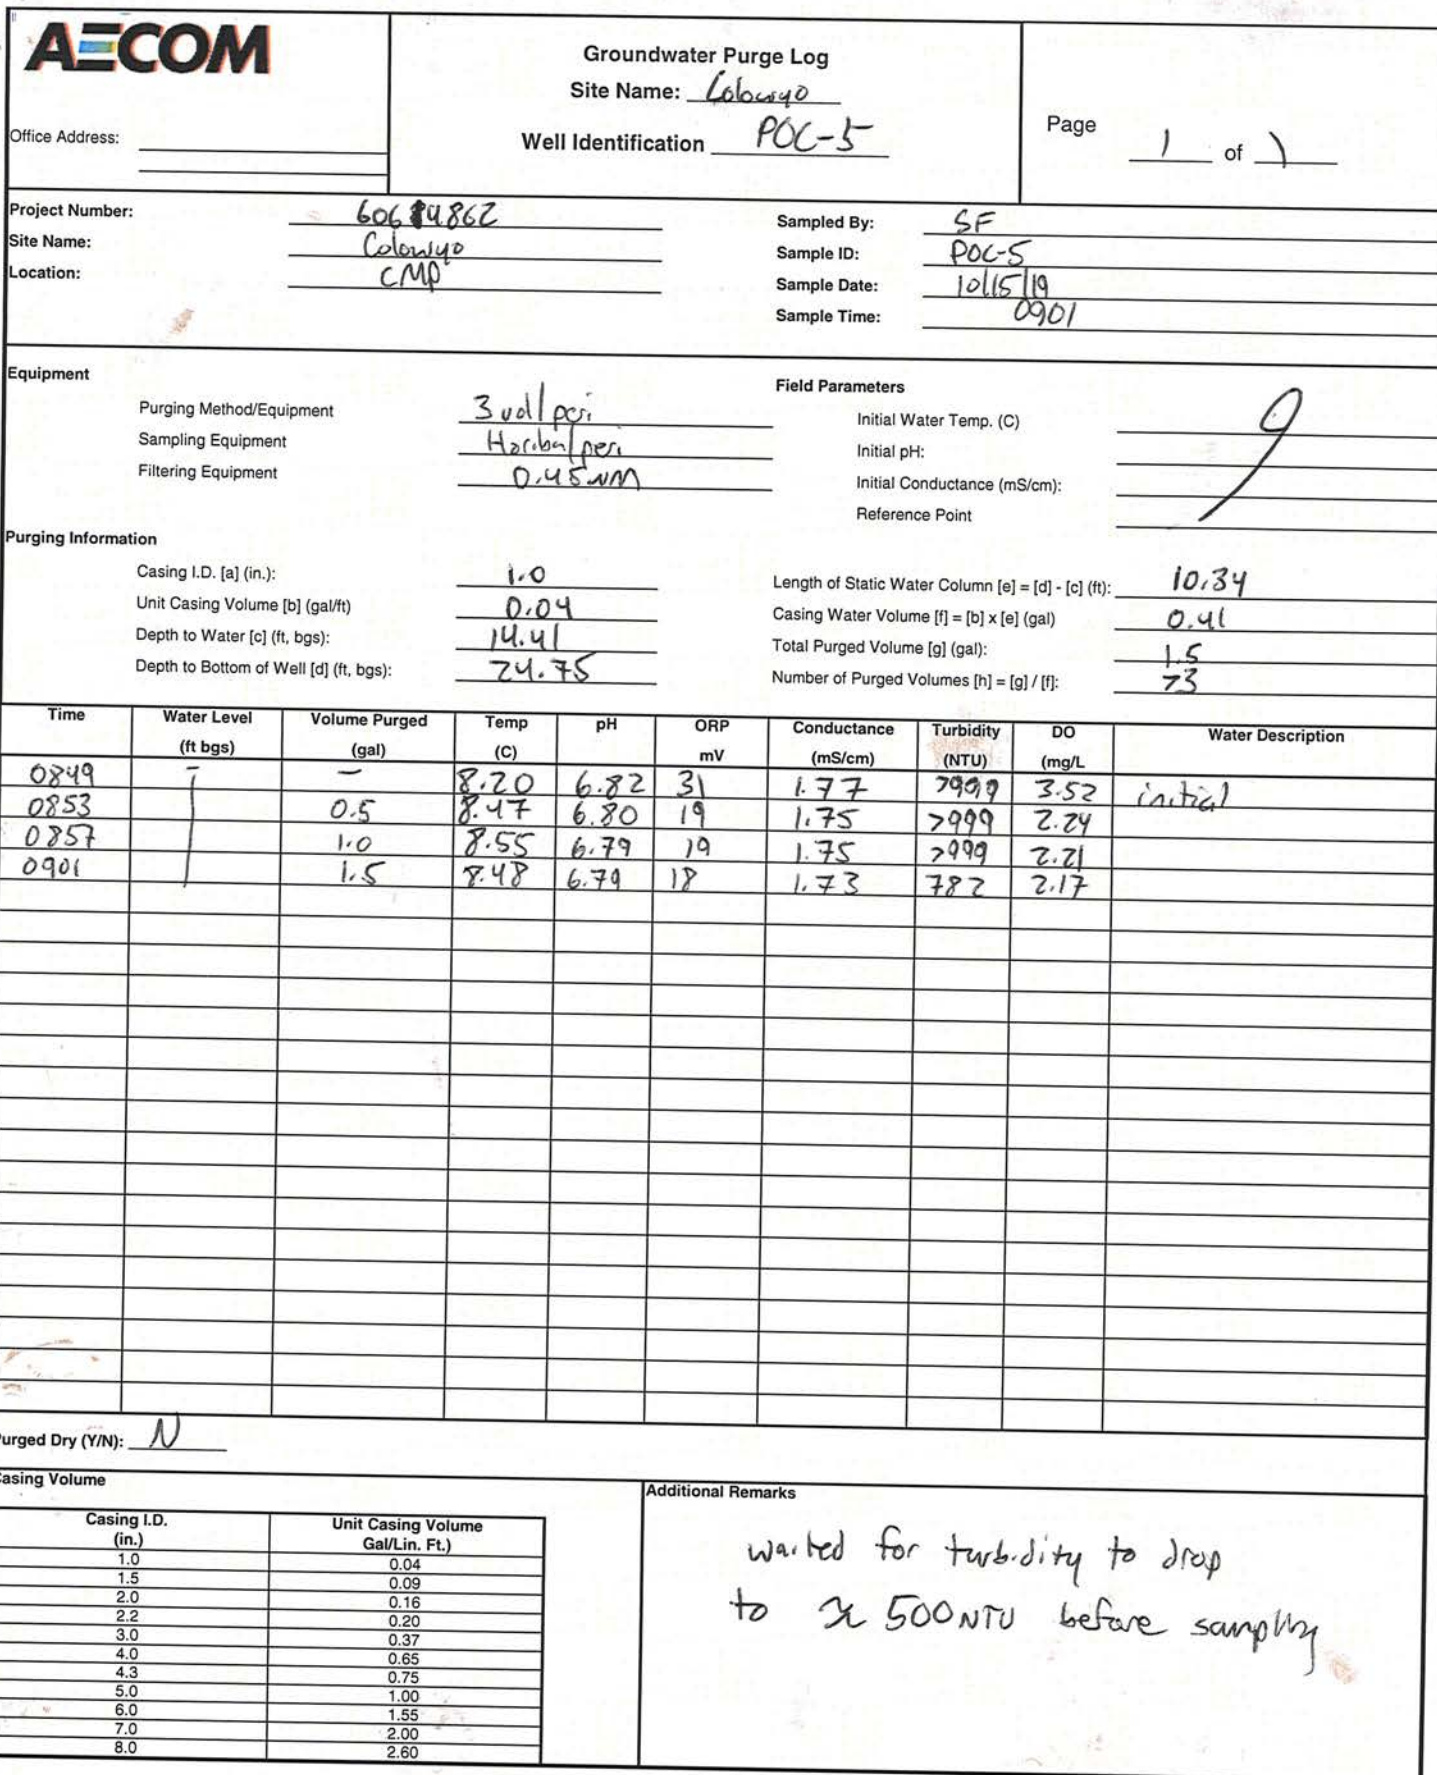 AECOM
Groundwater Purge Log
Site Name: Colowyo
Office Address:
Well Identification POC-5
Page 1 of 1
Project Number: 60619862
Site Name: Colowyo
Location: CMP
Sampled By: SF
Sample ID: POC-5
Sample Date: 10/15/19
Sample Time: 0901
Equipment
Purging Method/Equipment 3 vol/peri
Sampling Equipment Horiba/peri
Filtering Equipment 0.45 uM
Field Parameters
Initial Water Temp. (C)
Initial pH:
Initial Conductance (mS/cm):
Reference Point
Purging Information
Casing I.D. [a] (in.): 1.0
Unit Casing Volume [b] (gal/ft) 0.04
Depth to Water [c] (ft, bgs): 14.41
Depth to Bottom of Well [d] (ft, bgs): 24.75
Length of Static Water Column [e] = [d] - [c] (ft): 10.34
Casing Water Volume [f] = [b] x [e] (gal) 0.41
Total Purged Volume [g] (gal): 1.5
Number of Purged Volumes [h] = [g] / [f]: >3
Time Water Level (ft bgs) Volume Purged (gal) Temp (C) pH ORP mV Conductance (mS/cm) Turbidity (NTU) DO (mg/L Water Description
0849 - - 8.20 6.82 31 1.77 >999 3.52 initial
0853 0.5 8.47 6.80 19 1.75 >999 2.24
0857 1.0 8.55 6.79 19 1.75 >999 2.21
0901 1.5 8.48 6.79 18 1.73 782 2.17
urged Dry (Y/N): N
Casing Volume
Casing I.D. (in.) Unit Casing Volume Gal/Lin. Ft.)
1.0 0.04
1.5 0.09
2.0 0.16
2.2 0.20
3.0 0.37
4.0 0.65
4.3 0.75
5.0 1.00
6.0 1.55
7.0 2.00
8.0 2.60
Additional Remarks
waited for turbidity to drop
to ≈ 500 NTU before sampling